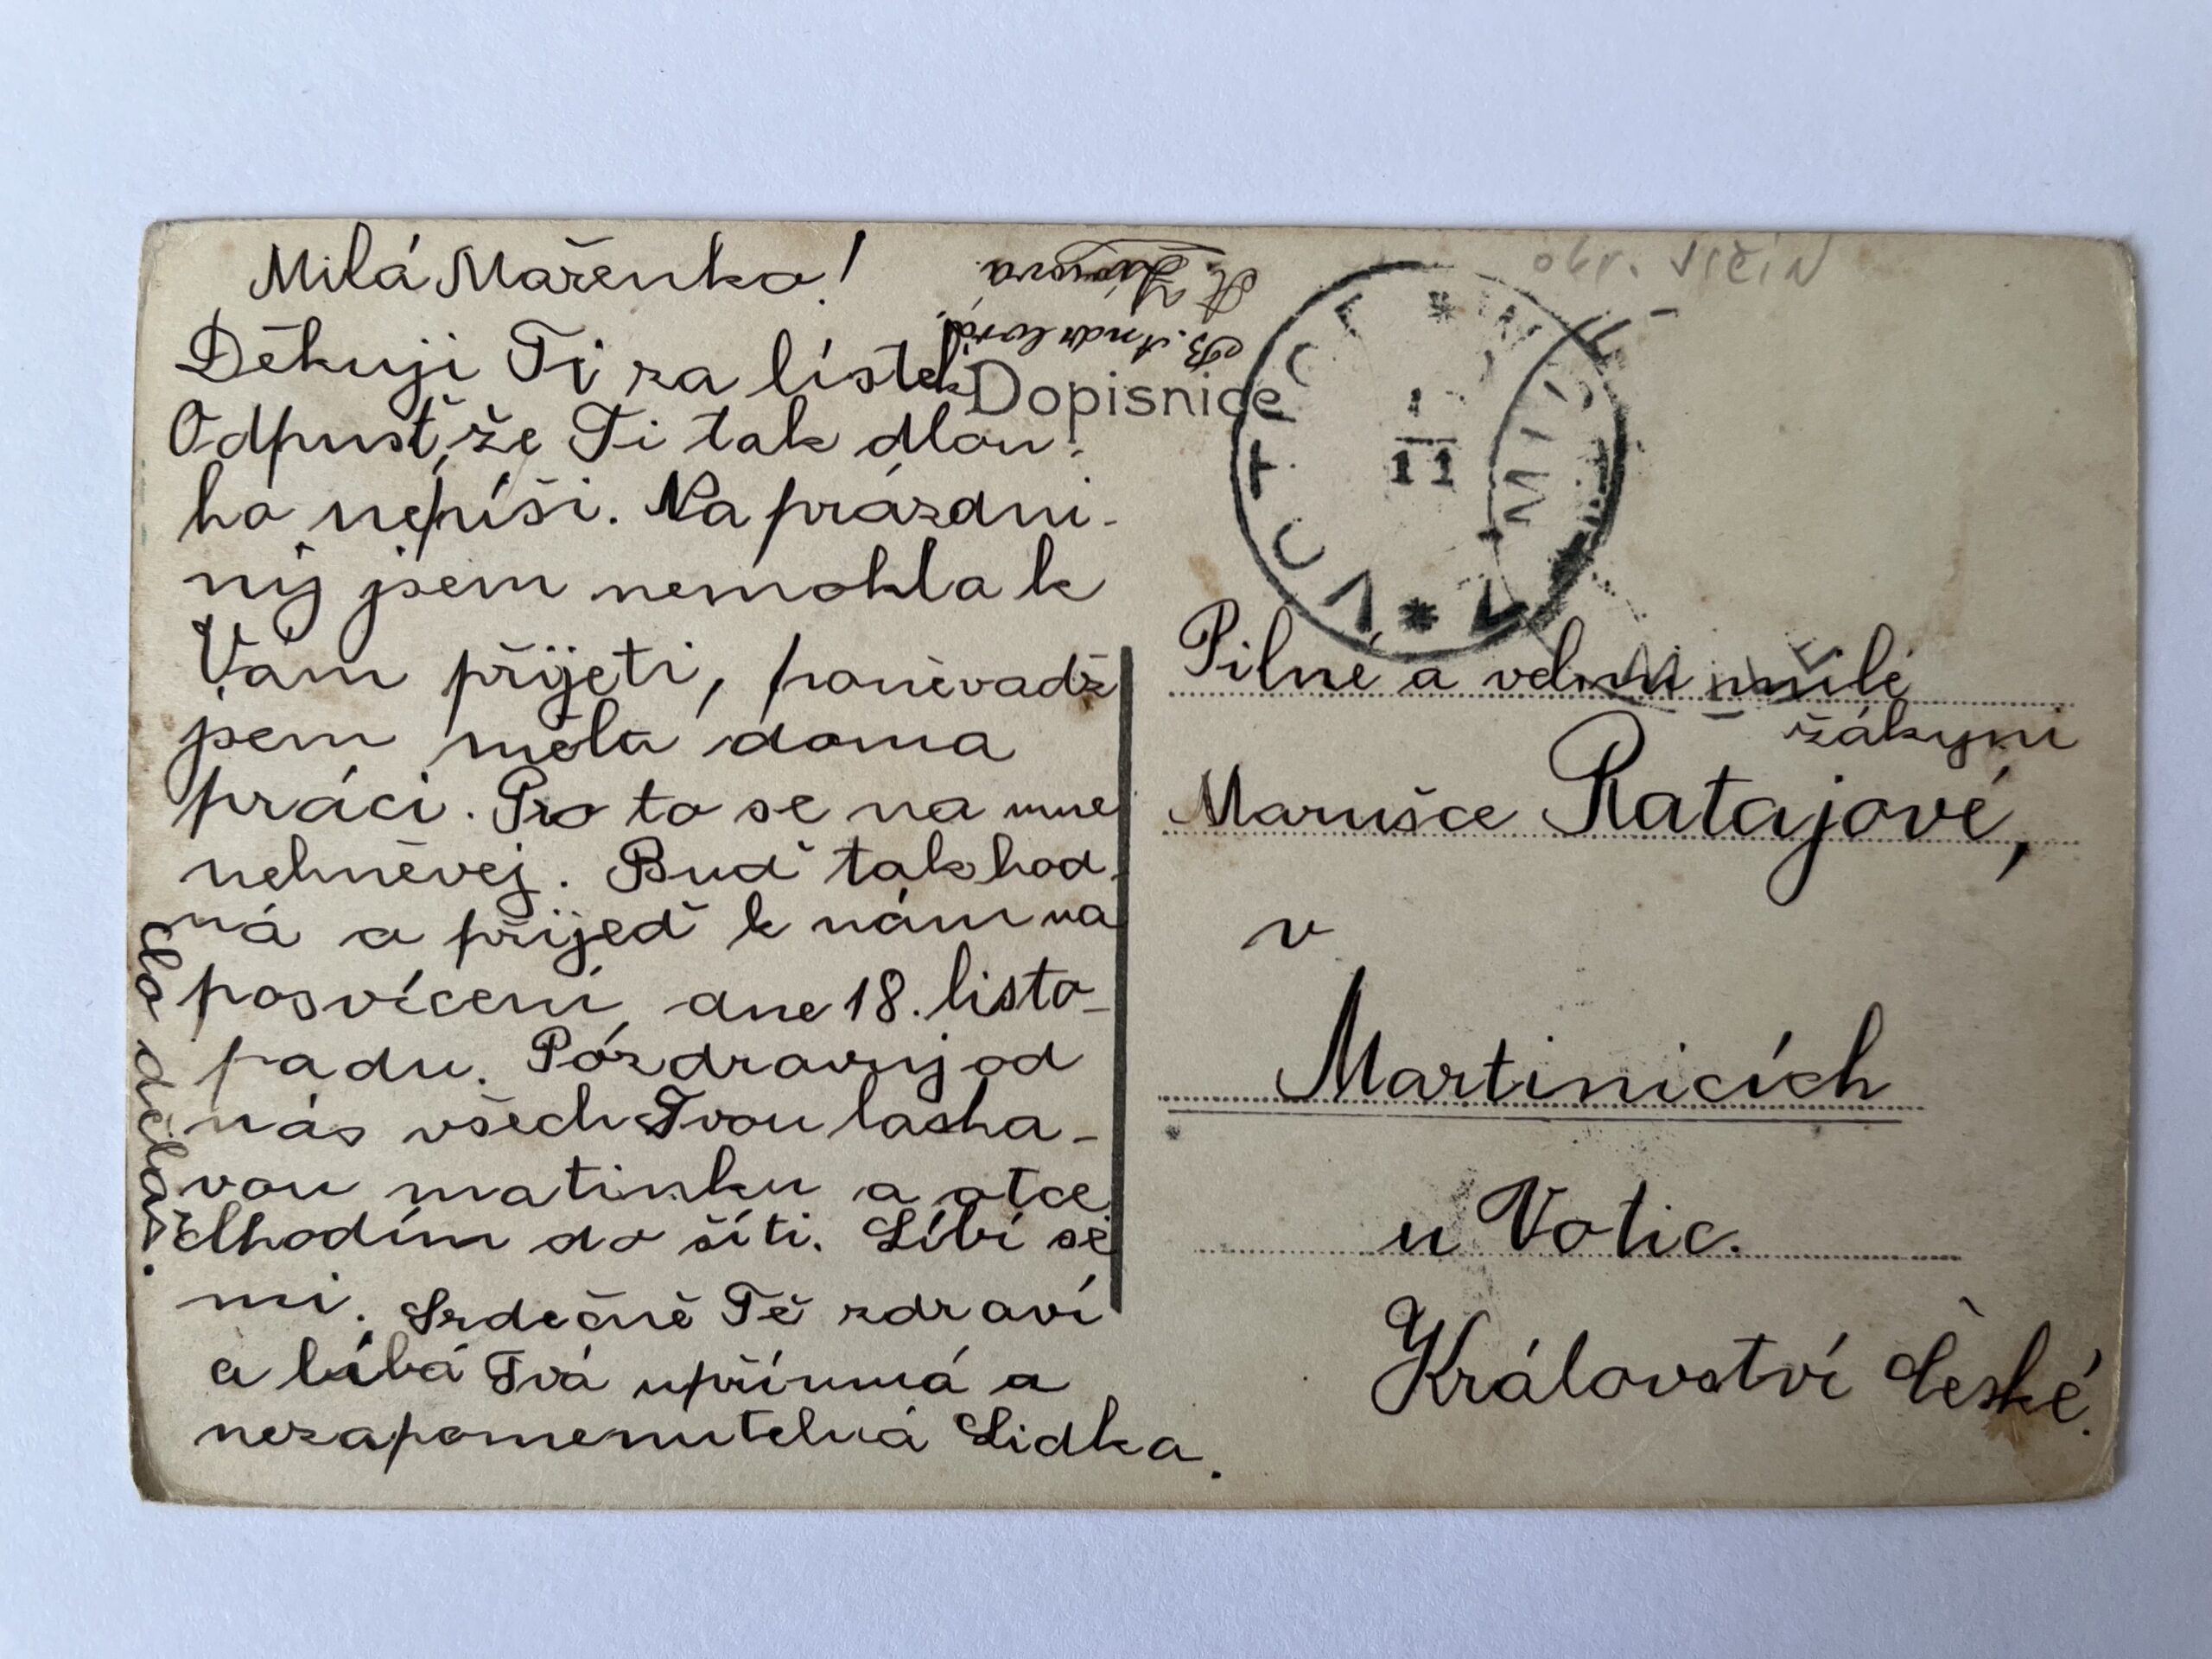 Milá Mařenko!
Děkuji Ti za lístek
Odpusť, že Ti tak dlou-
ho nepíši. Na prázdni-
ny jsem nemohla k
Vám přijeti, poněvadž
jsem měla doma
práci. Pro to se na mne
nehněvej. Buď tak hod-
ná a přijeď k nám na
posvícení dne 18. listo-
padu. Pozdravuj od
nás všech Tvou laska-
vou matinku a otce.
Chodím do šití. Líbí se
mi. Srdečně Tě zdraví
a líbá Tvá upřímná a
nezapomenutelná Lidka.
Co děláš.
Dopisnice
1
11
obr. Jičín
Pilné a velmi milé
žákyni
Marušce Ratajové,
v
Martinicích
u Votic.
Království České.